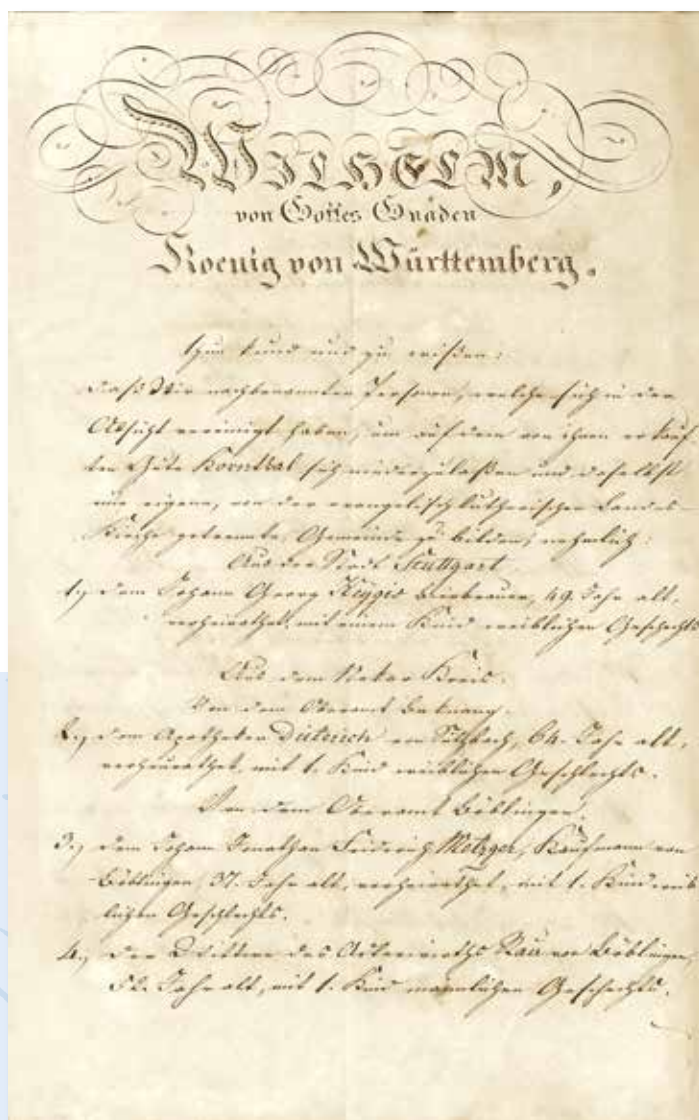 WILHELM,
von Gottes Gnaden
Koenig von Württemberg.
Thun kund und zu wissen:
Daß Wir nachbenannten Personen, welche sich in der
Absicht vereinigt haben, um auf dem von ihnen erkauf
ten Gute Kornthal sich niederzulaßen und daselbst
eine eigene, von der evangelisch lutherischen Landes-
Kirche getrennte, Gemeinde zu bilden, nehmlich:
Aus der Stadt Stuttgart
1., dem Johann Georg Bierbrauer, 49. Jahr alt,
verheirathet, mit einem Kind weiblichen Geschlechts
Aus dem Neker Kreis.
Von dem Oberamt Baknang.
2., dem Apotheker Dieterich von Sulzbach, 64. Jahr alt,
verheurathet, mit 1. Kind weiblichen Geschlechts.
Von dem Oberamt Böblingen.
3., dem Johann Jonathan Friedrich Metzger, Kaufmann von
Böblingen, 37. Jahr alt, verheirathet, mit 1. Kind weib
lichen Geschlechts.
4., Der Wittwe des Rau von Böblingen,
52. Jahr alt, mit 1. Kind männlichen Geschlechts.